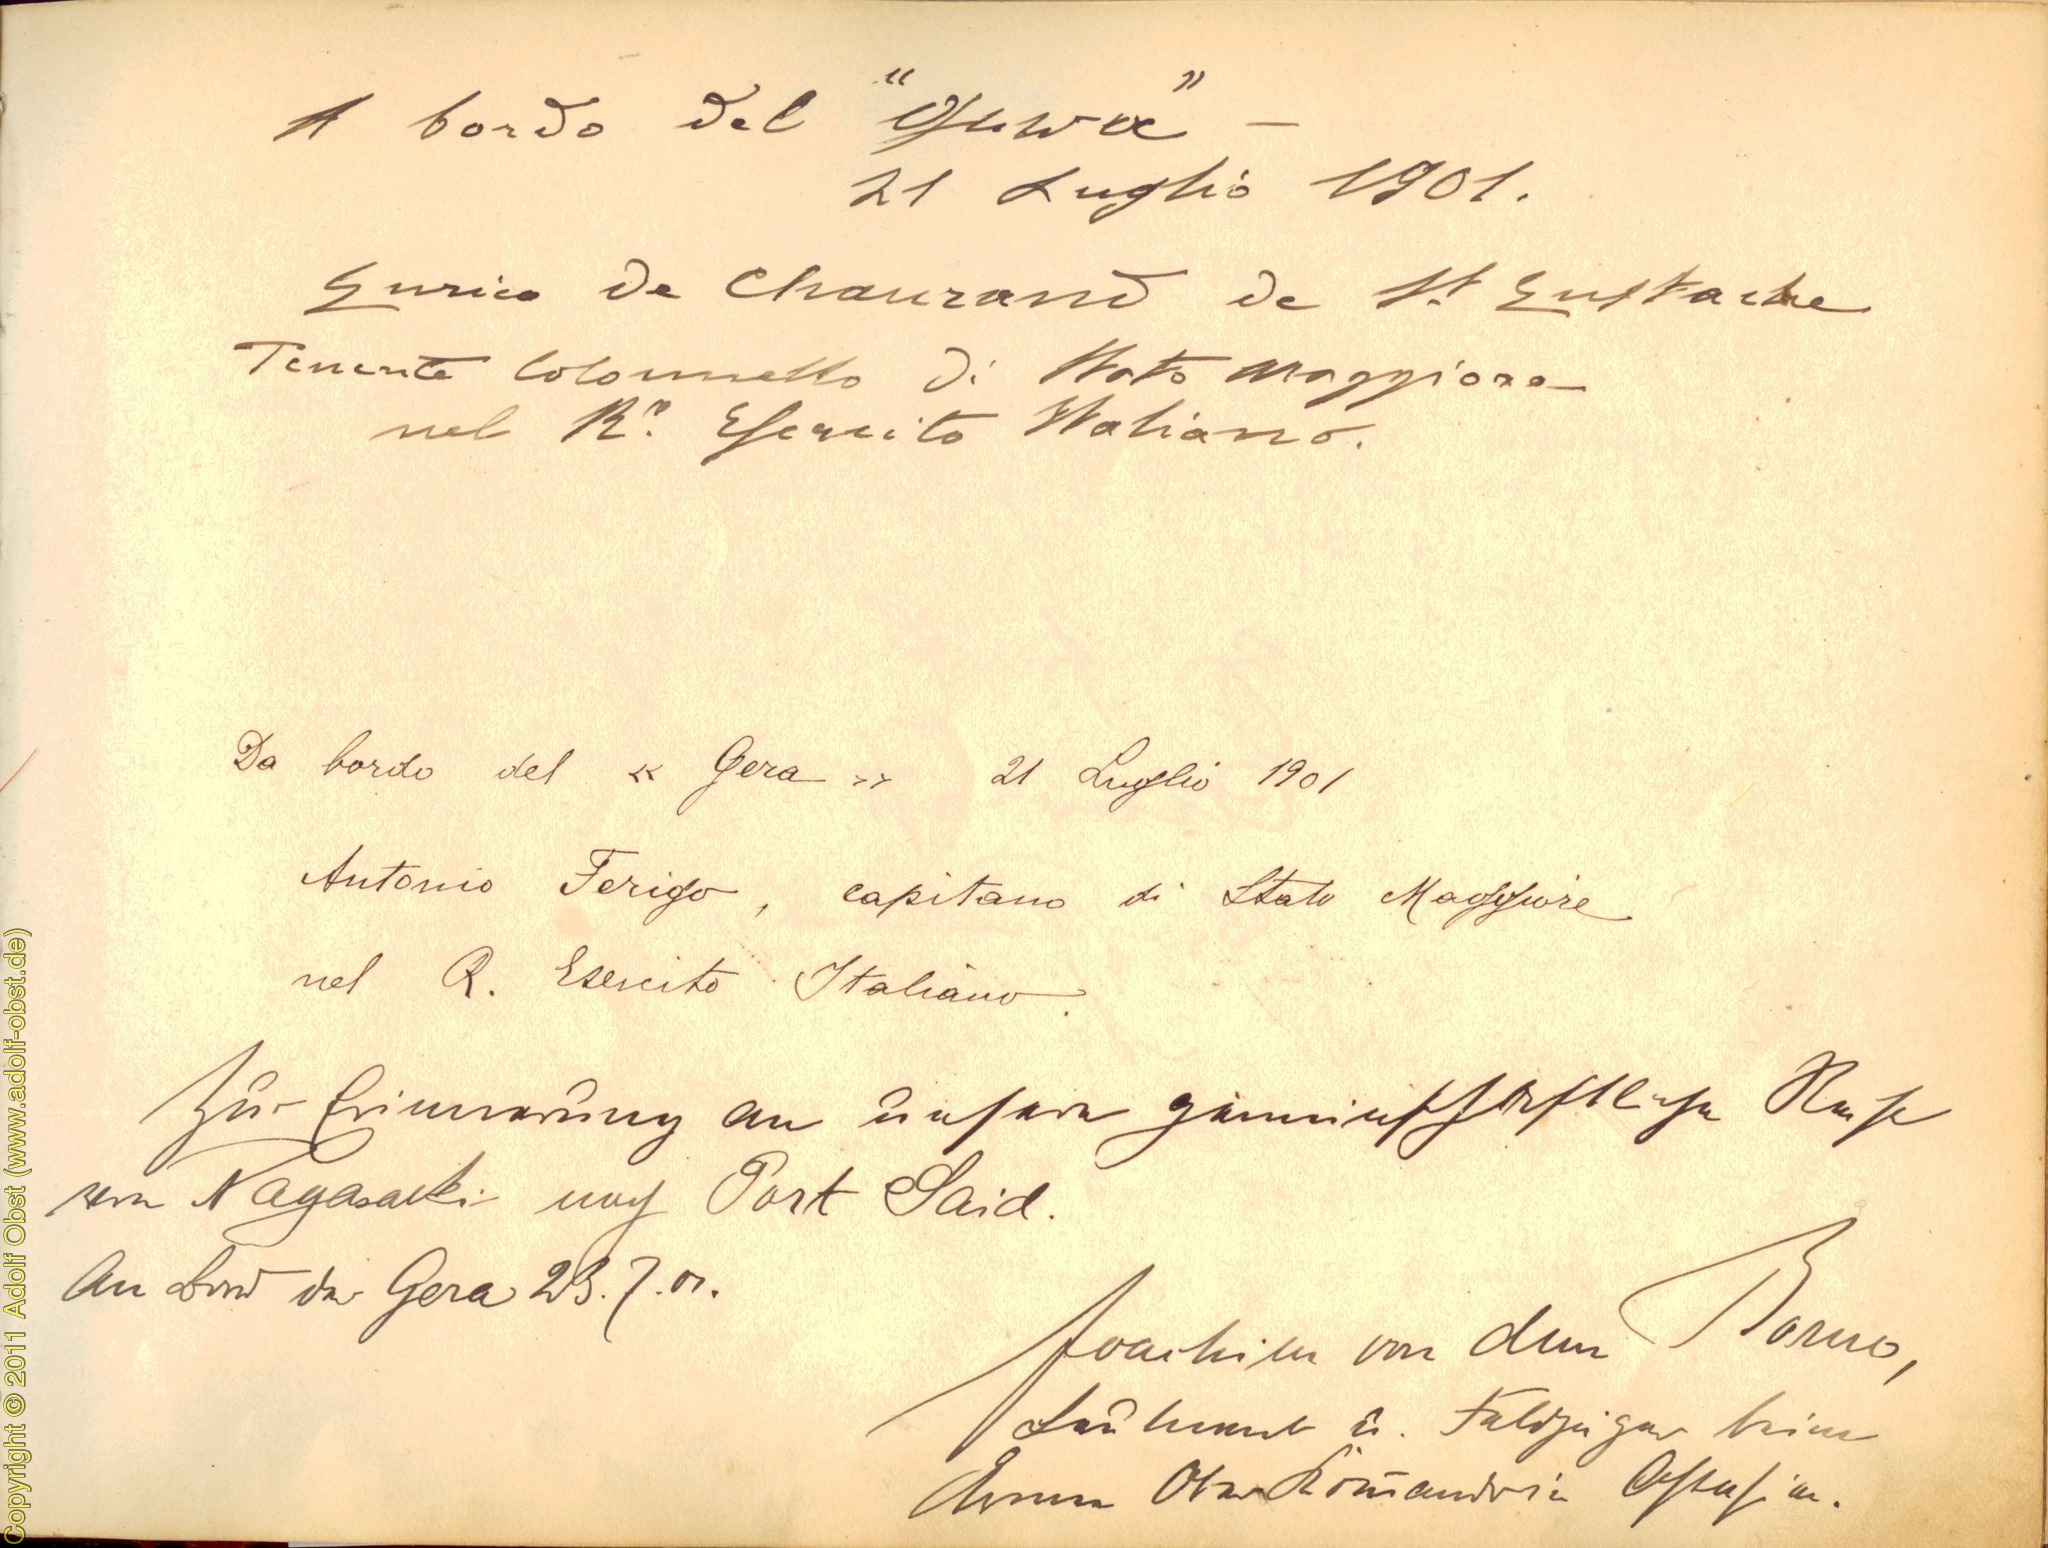 A bordo del "Gera" —
21 Luglio 1901.
Enrico de Chaurand de St Eustache
Tenente Colonnello di Stato Maggiore
nel Ro. Esercito Italiano.
Da bordo del « Gera » 21 Luglio 1901
Antonio Ferigo, capitano di Stato Maggiore
nel R. Esercito Italiano.
Zur Erinnerung an unsere gemeinschaftliche Reise
von Nagasacki nach Port Said.
An Bord der Gera 23.7.01.
Joachim von dem Borne,
Leutnant u. Feldjäger beim
Armee Ober Kommando in Ostasien.
Copyright © 2011 Adolf Obst (www.adolf-obst.de)